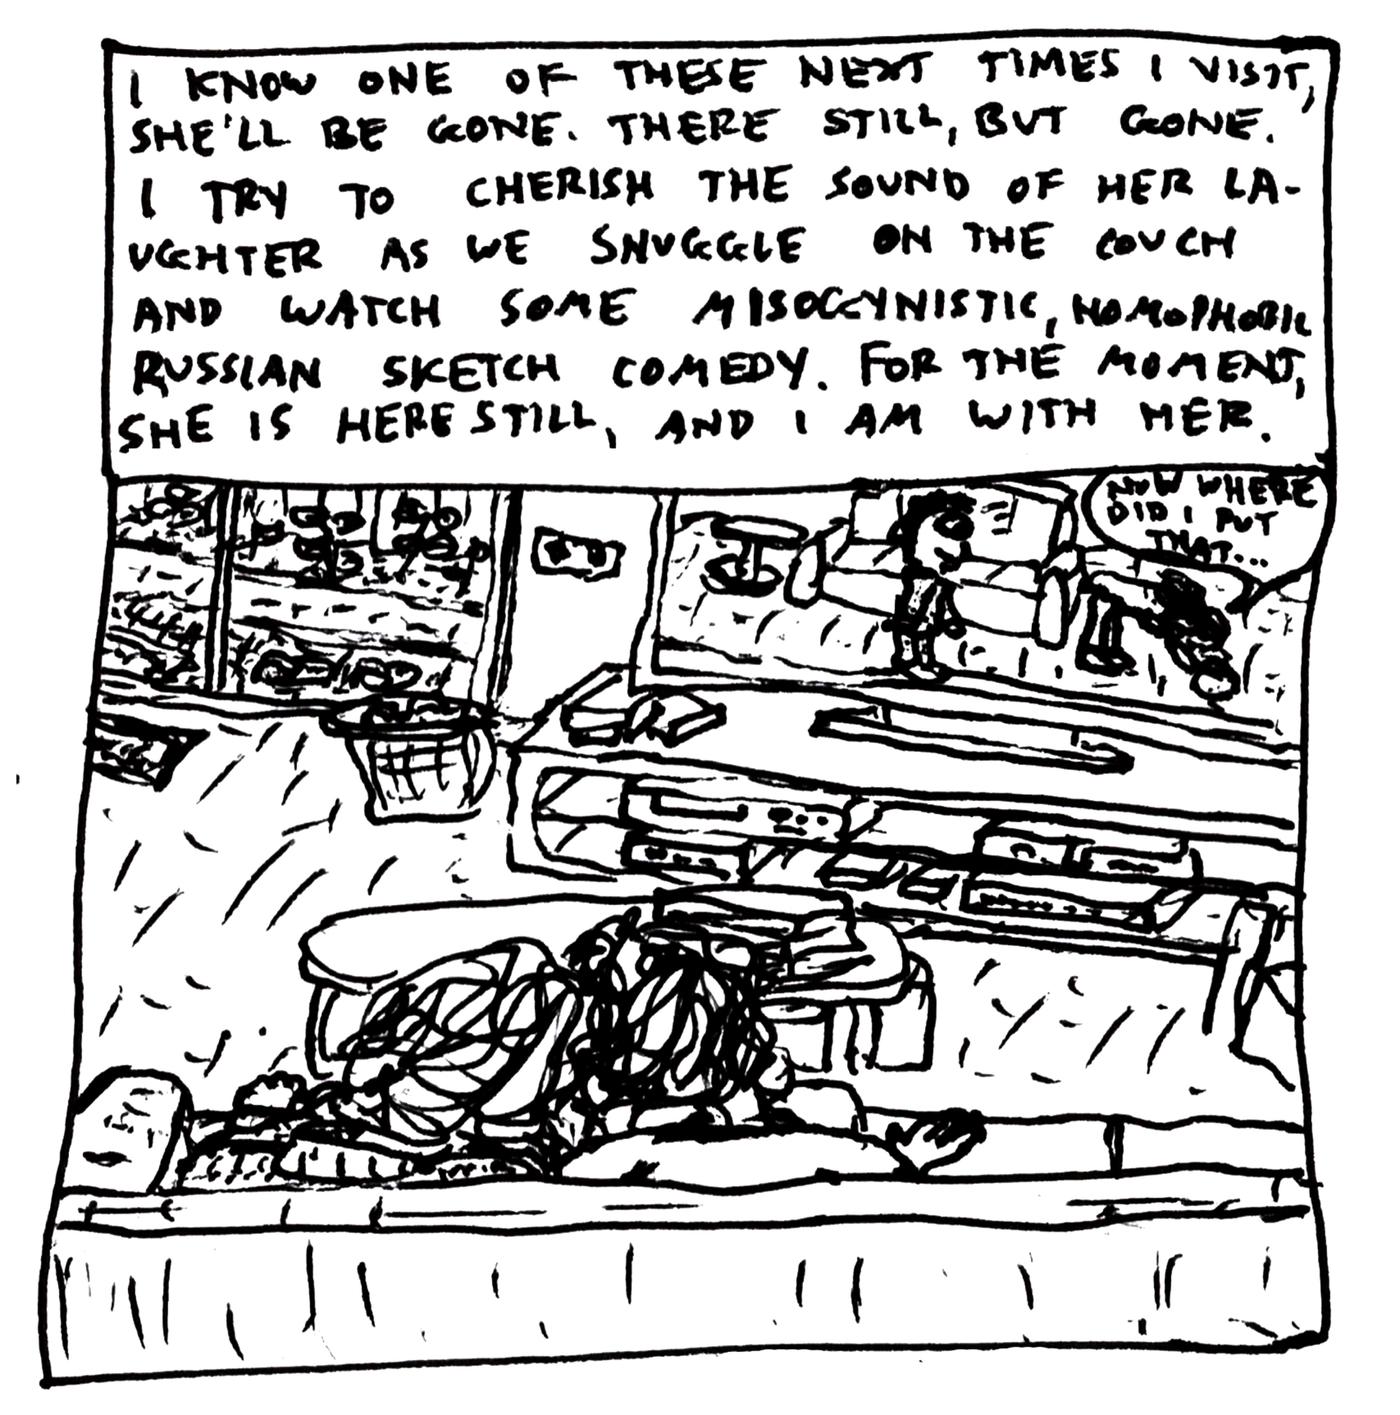 I KNOW ONE OF THESE NEXT TIMES I VISIT,
SHE'LL BE GONE. THERE STILL, BUT GONE.
I TRY TO CHERISH THE SOUND OF HER LA-
UGHTER AS WE SNUGGLE ON THE COUCH
AND WATCH SOME MISOGYNISTIC, HOMOPHOBIC
RUSSIAN SKETCH COMEDY. FOR THE MOMENT,
SHE IS HERE STILL, AND I AM WITH HER.
NOW WHERE
DID I PUT
THAT...